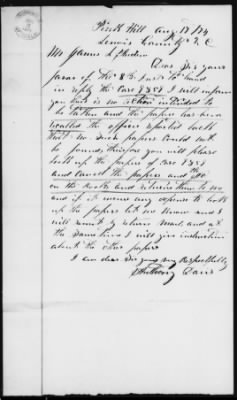 Pink Hill Aug 18 /84
Lenoir County N.C.
Mr James
Dear Sir yours
of the 8th Inst to hand
in reply the Case 8758 I will inform
you that is no action intended to
be taken and the papers has been
the officer reported back
that no such papers could not
be found, therefore you will please
look up the papers of Case 8758
and cancel the papers and
on the Books and return them to me
and if it incurs any expense to look
up the papers let me know and I
will remit by return mail and at
the same time I will give instruction
about the other papers
I am dear Sir yours Respectfully
Anthony Davis